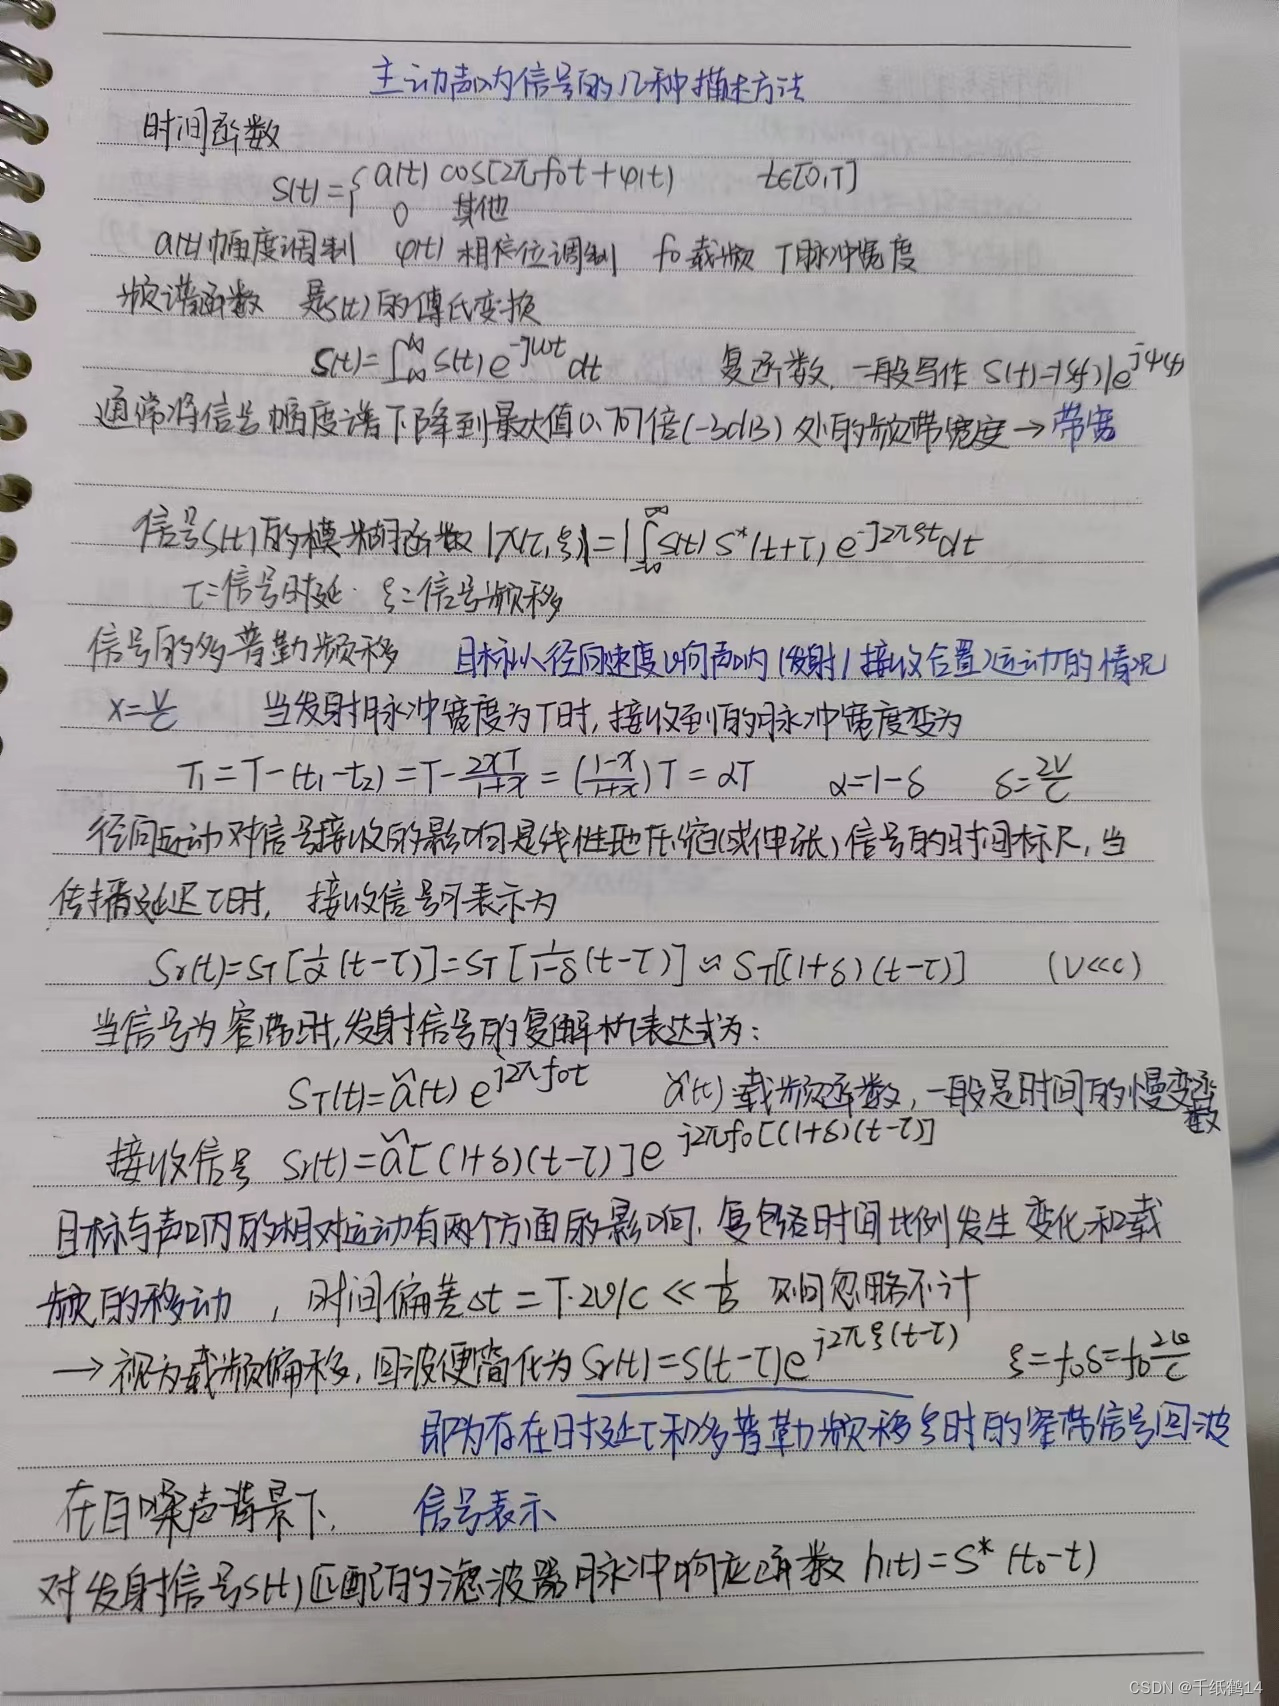 主动声呐信号的几种描述方法
时间函数
s(t)={a(t) cos[2πf0t+φ(t) t∈[0,T]
0 其他
a(t)幅度调制 φ(t)相位调制 f0载频 T脉冲宽度
频谱函数 是s(t)的傅氏变换
S(t)=∫_{-∞}^{∞} s(t)e^{-jωt}dt 复函数,一般写作 S(f)=|S(f)|e^{jψ(f)}
通常将信号幅度谱下降到最大值0.707倍(-3dB)处的频带宽度→带宽
信号s(t)的模糊函数|χ(τ,ξ)|=|∫_{-∞}^{∞} s(t)s*(t+τ)e^{-j2πξt}dt
τ=信号时延. ξ=信号频移
信号的多普勒频移 目标以径向速度v向声呐(发射/接收台置)运动的情况
x=v/c 当发射脉冲宽度为T时,接收到的脉冲宽度变为
T1=T-(t1-t2)=T-2xT/1+x=(1-x/1+x)T=αT α=1-δ δ=2v/c
径向运动对信号接收的影响是线性地压缩(或伸张)信号的时间标尺,当
传播延迟τ时, 接收信号可表示为
Sr(t)=ST[1/α(t-τ)]=ST[1/1-δ(t-τ)]≈ST[(1+δ)(t-τ)] (v<<c)
当信号为窄带时,发射信号的复解析表达式为:
ST(t)=ã(t)e^{j2πf0t} ã(t):载频函数,一般是时间的慢变函
数
接收信号 Sr(t)=ã[(1+δ)(t-τ)]e^{j2πf0[(1+δ)(t-τ)]}
目标与声呐的相对运动有两个方面的影响,复包络时间比例发生变化和载
频的移动,时间偏差Δt=T·2v/c≪1/B 则可忽略不计
→视为载频偏移,回波便简化为Sr(t)=S(t-τ)e^{j2πξ(t-τ)} ξ=f0δ=f0 2v/c
即为存在时延τ和多普勒频移ξ时的窄带信号回波
在白噪声背景下, 信号表示
对发射信号s(t)匹配的滤波器脉冲响应函数h(t)=S*(t0-t)
CSDN @千纸鹤14